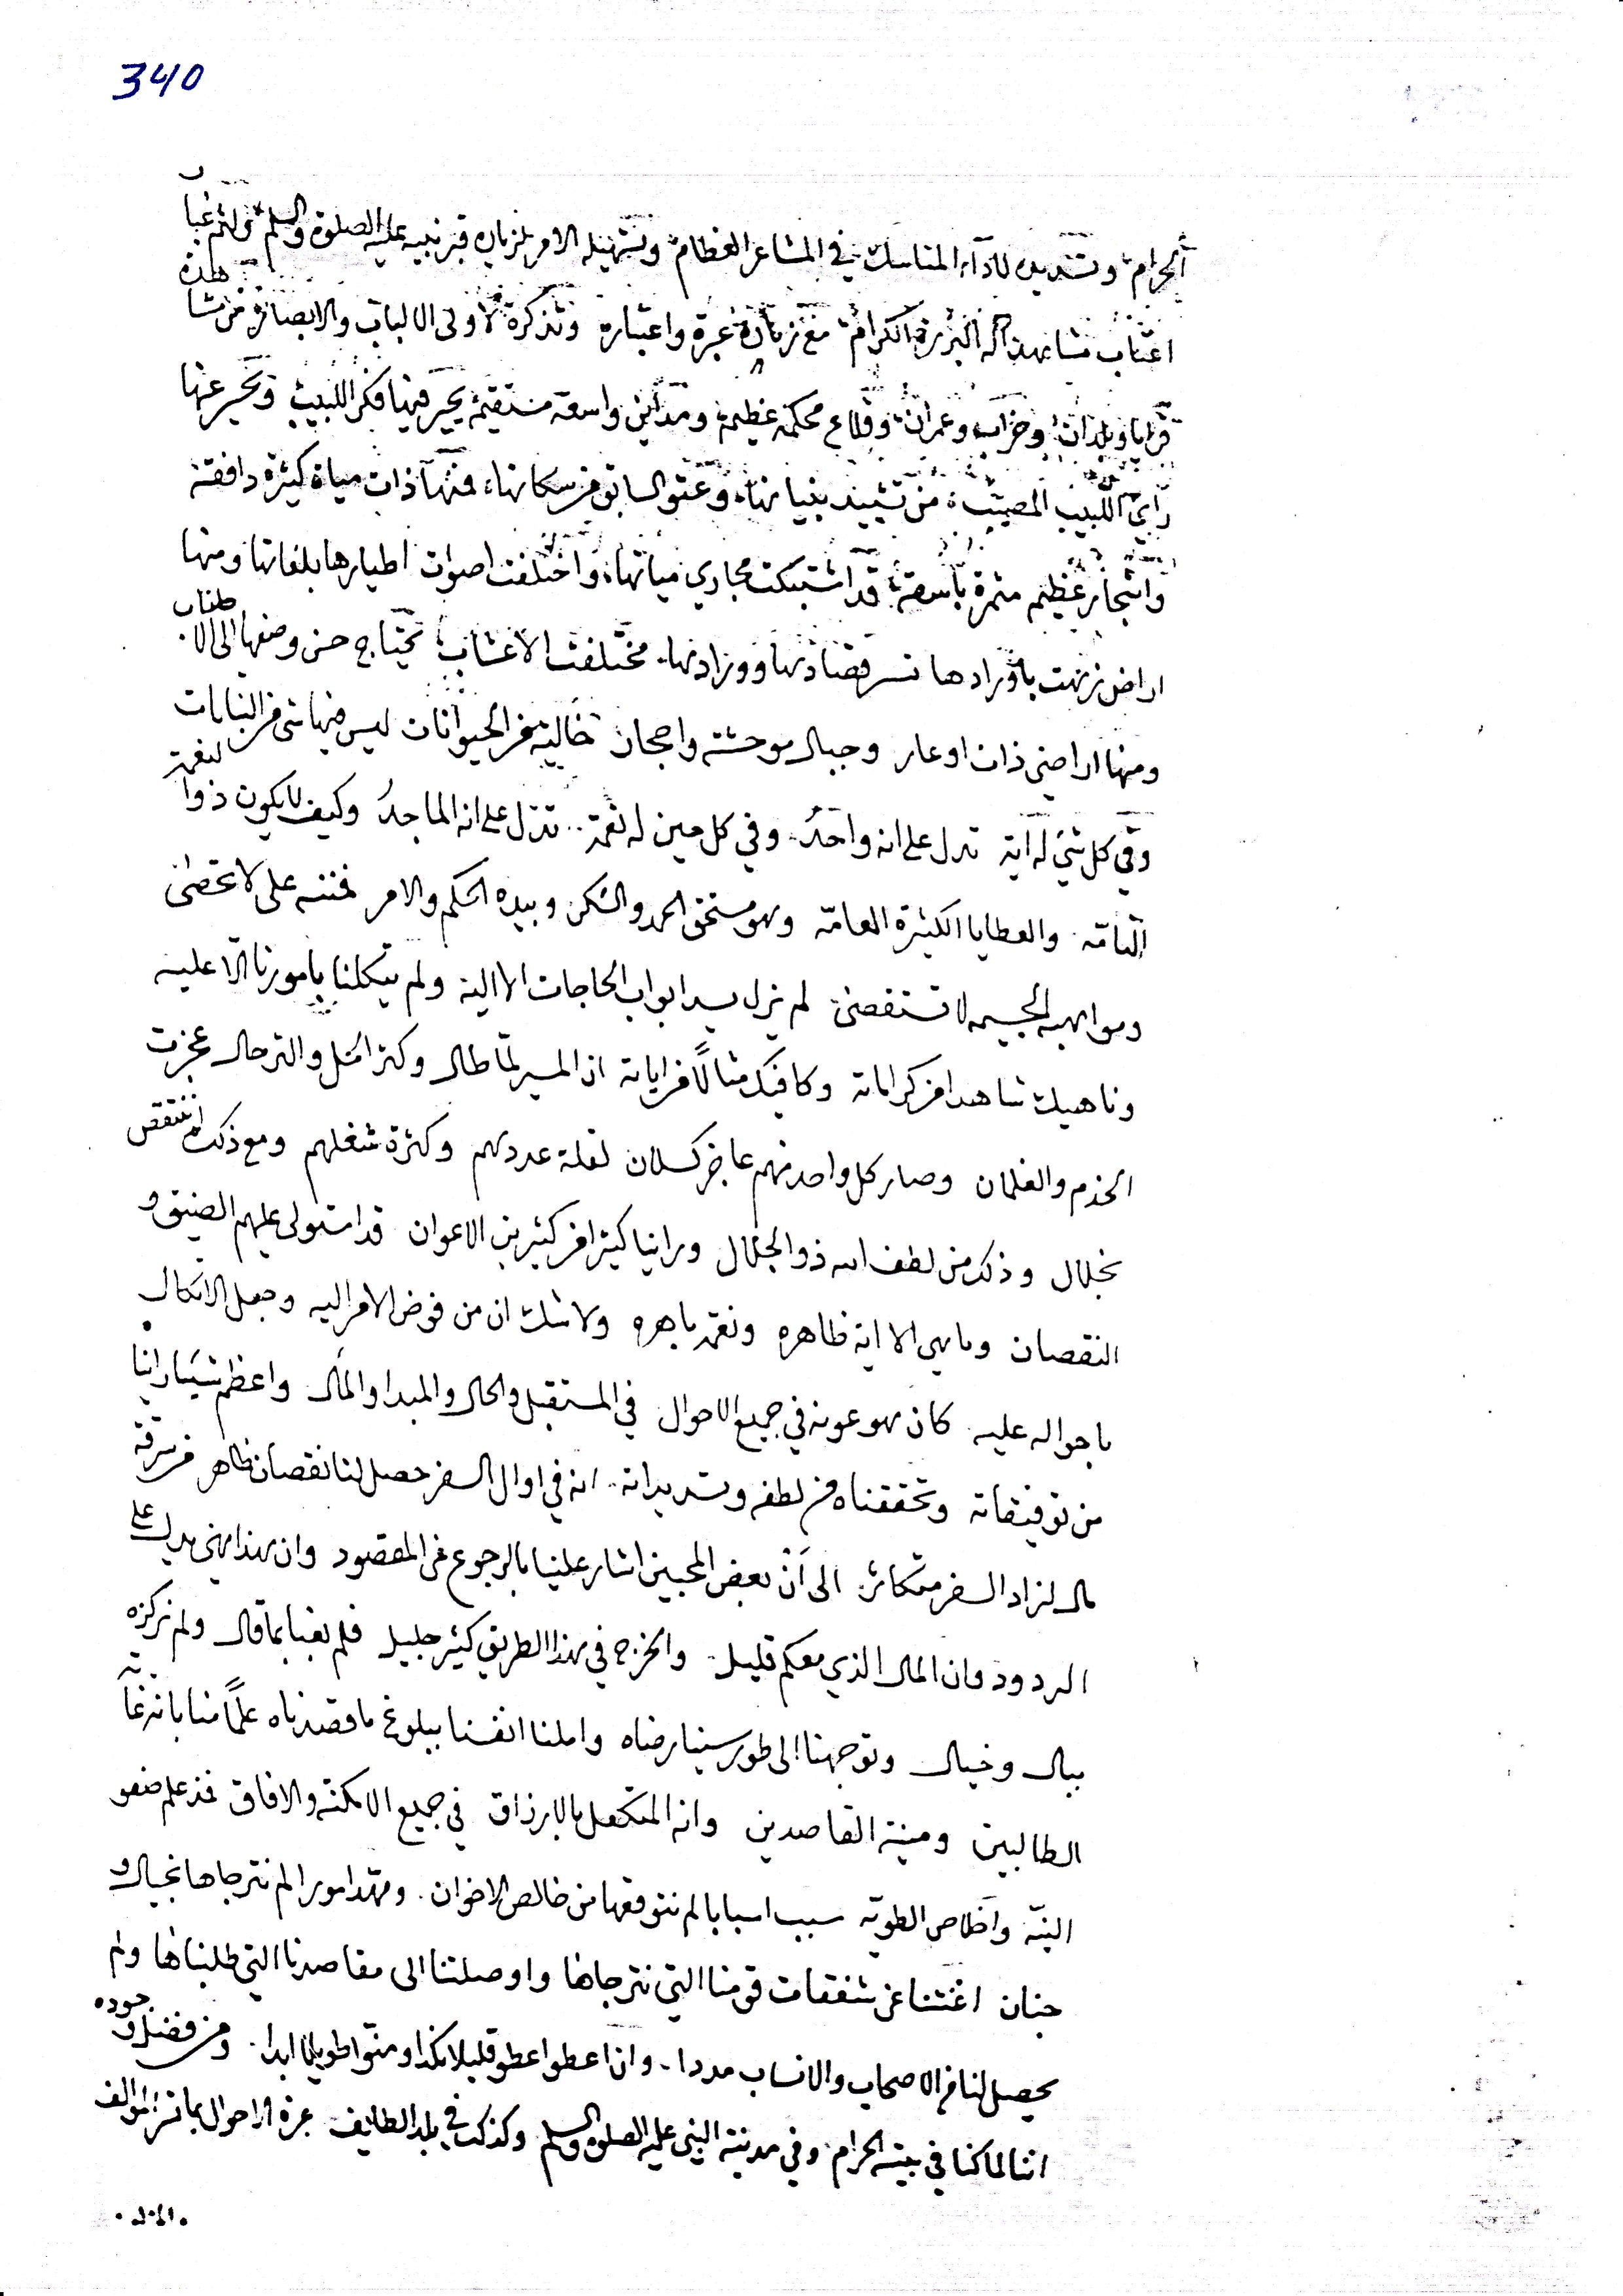 340
الحرام وتسديده لادآء المناسك في المشاعر العظام وتسهيله الامر لزيارة قبر نبيه عليه الصلوة والسلم ولثم غبار
اعتاب مشاهد آله البررة الكرام مع زيادة عبرة واعتبار وتذكرة لاولى الالباب والابصار من مشاهدة
قرايا وبلدان وخراب وعمران وقلاع محكمة عظيمة ومدائن واسعة مستقيمة يحير فيها فكر اللبيب ويحسر عنها
راي اللبيب المصيب من تشييد بنيانها وعتو السابق من سكانها فمنها ذات مياه كثيرة دافقة
واشجار عظيم مثمرة باسقة قد اشتبكت مجاري مياهها واختلفت اصوات اطيارها بلغاتها ومنها
اراض زهت باورادها تسر قصادها وورادها مختلفة الاعشاب تحتاج حسن وصفها الى الاطناب
ومنها اراضي ذات اوعار وجبال موحشة واحجار خالية من الحيوانات ليس فيها شى من النباتات
وفي كل شئ له آية تدل على انه واحد وفي كل حين له نعمة تدل على انه الماجد وكيف لا يكون ذو النعمة
التامّه والعطايا الكثيرة العامّه وهو مستحق الحمد والشكر وبيده الحكم والامر فمننه على لا تحصى
ومواهبه الجسيمه لا تستقصى لم يزل يسد ابواب الحاجات الا اليه ولم يتكلنا بامورنا الا عليه
وناهيك شاهدا من كراماته وكافيك مثالاً من اياته ان المسير لما طال وكثر الحل والترحال عجزت
الخدم والغلمان وصار كل واحد منهم عاجز كسلان لقلة عددهم وكثرة شغلهم ومع ذلك لم ننتقص
بخلال وذلك من لطف الله ذو الجلال وراينا كثيرا من كثير من الاعوان قد استولى عليهم الضيق و
النقصان وما هي الا اية ظاهره ونعمة باهره ولا شك ان من فوض الامر اليه وجعل الاتكال
باحواله عليه كان هو عونه في جميع الاحوال في المستقبل والحال والمبدا والمآل واعظم شئ راينا
من توفيقاته وتحققناه من لطفه وتسديداته انه في اوال السفر حصل لنا نقصان ظاهر من سرقة
مال لزاد السفر متكاثر الى ان بعض المحبين اشار علينا بالرجوع عن المقصود وان هذا يدل على
الردود وان المال الذي معكم قليل والخرج في هذا الطريق كثير جليل فلم نعبا بما قال ولم نركزه
ببال وخيال وتوجهنا الى طور سينا رضاه واملنا انفسنا ببلوغ ما قصدناه علماً منا بانه غاية
الطالبين ومنية القاصدين وانه المتكفل بالارزاق في جميع الامكنة والافاق فمذ علم صفو
النيّه واخلاص الطويّه سبب اسبابا لم نتوقعها من خالص الاخوان ومهد امورا لم نترجاها بخيال و
جنان اغنتنا عن شفقات قومنا التي نترجاها واوصلتنا الى مقاصدنا التي طلبناها ولم
يحصل لنا من الاصحاب والانساب مددا وان اعطوا اعطو قليلا نكدا ومنّوا طويلا ابدا ومن فضله وجوده
اننا لما كنا في بيته الحرام وفي مدينة النبي عليه الصلوة والسلم وكذلك في بلد الطايف